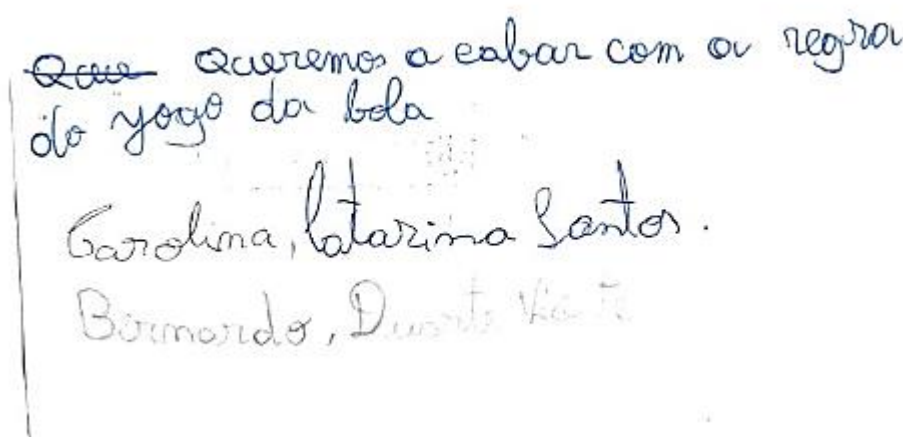 Queremos a cabar com a regra
do yogo da bola
Carolina, Catarina Santos.
Bernardo, Duarte